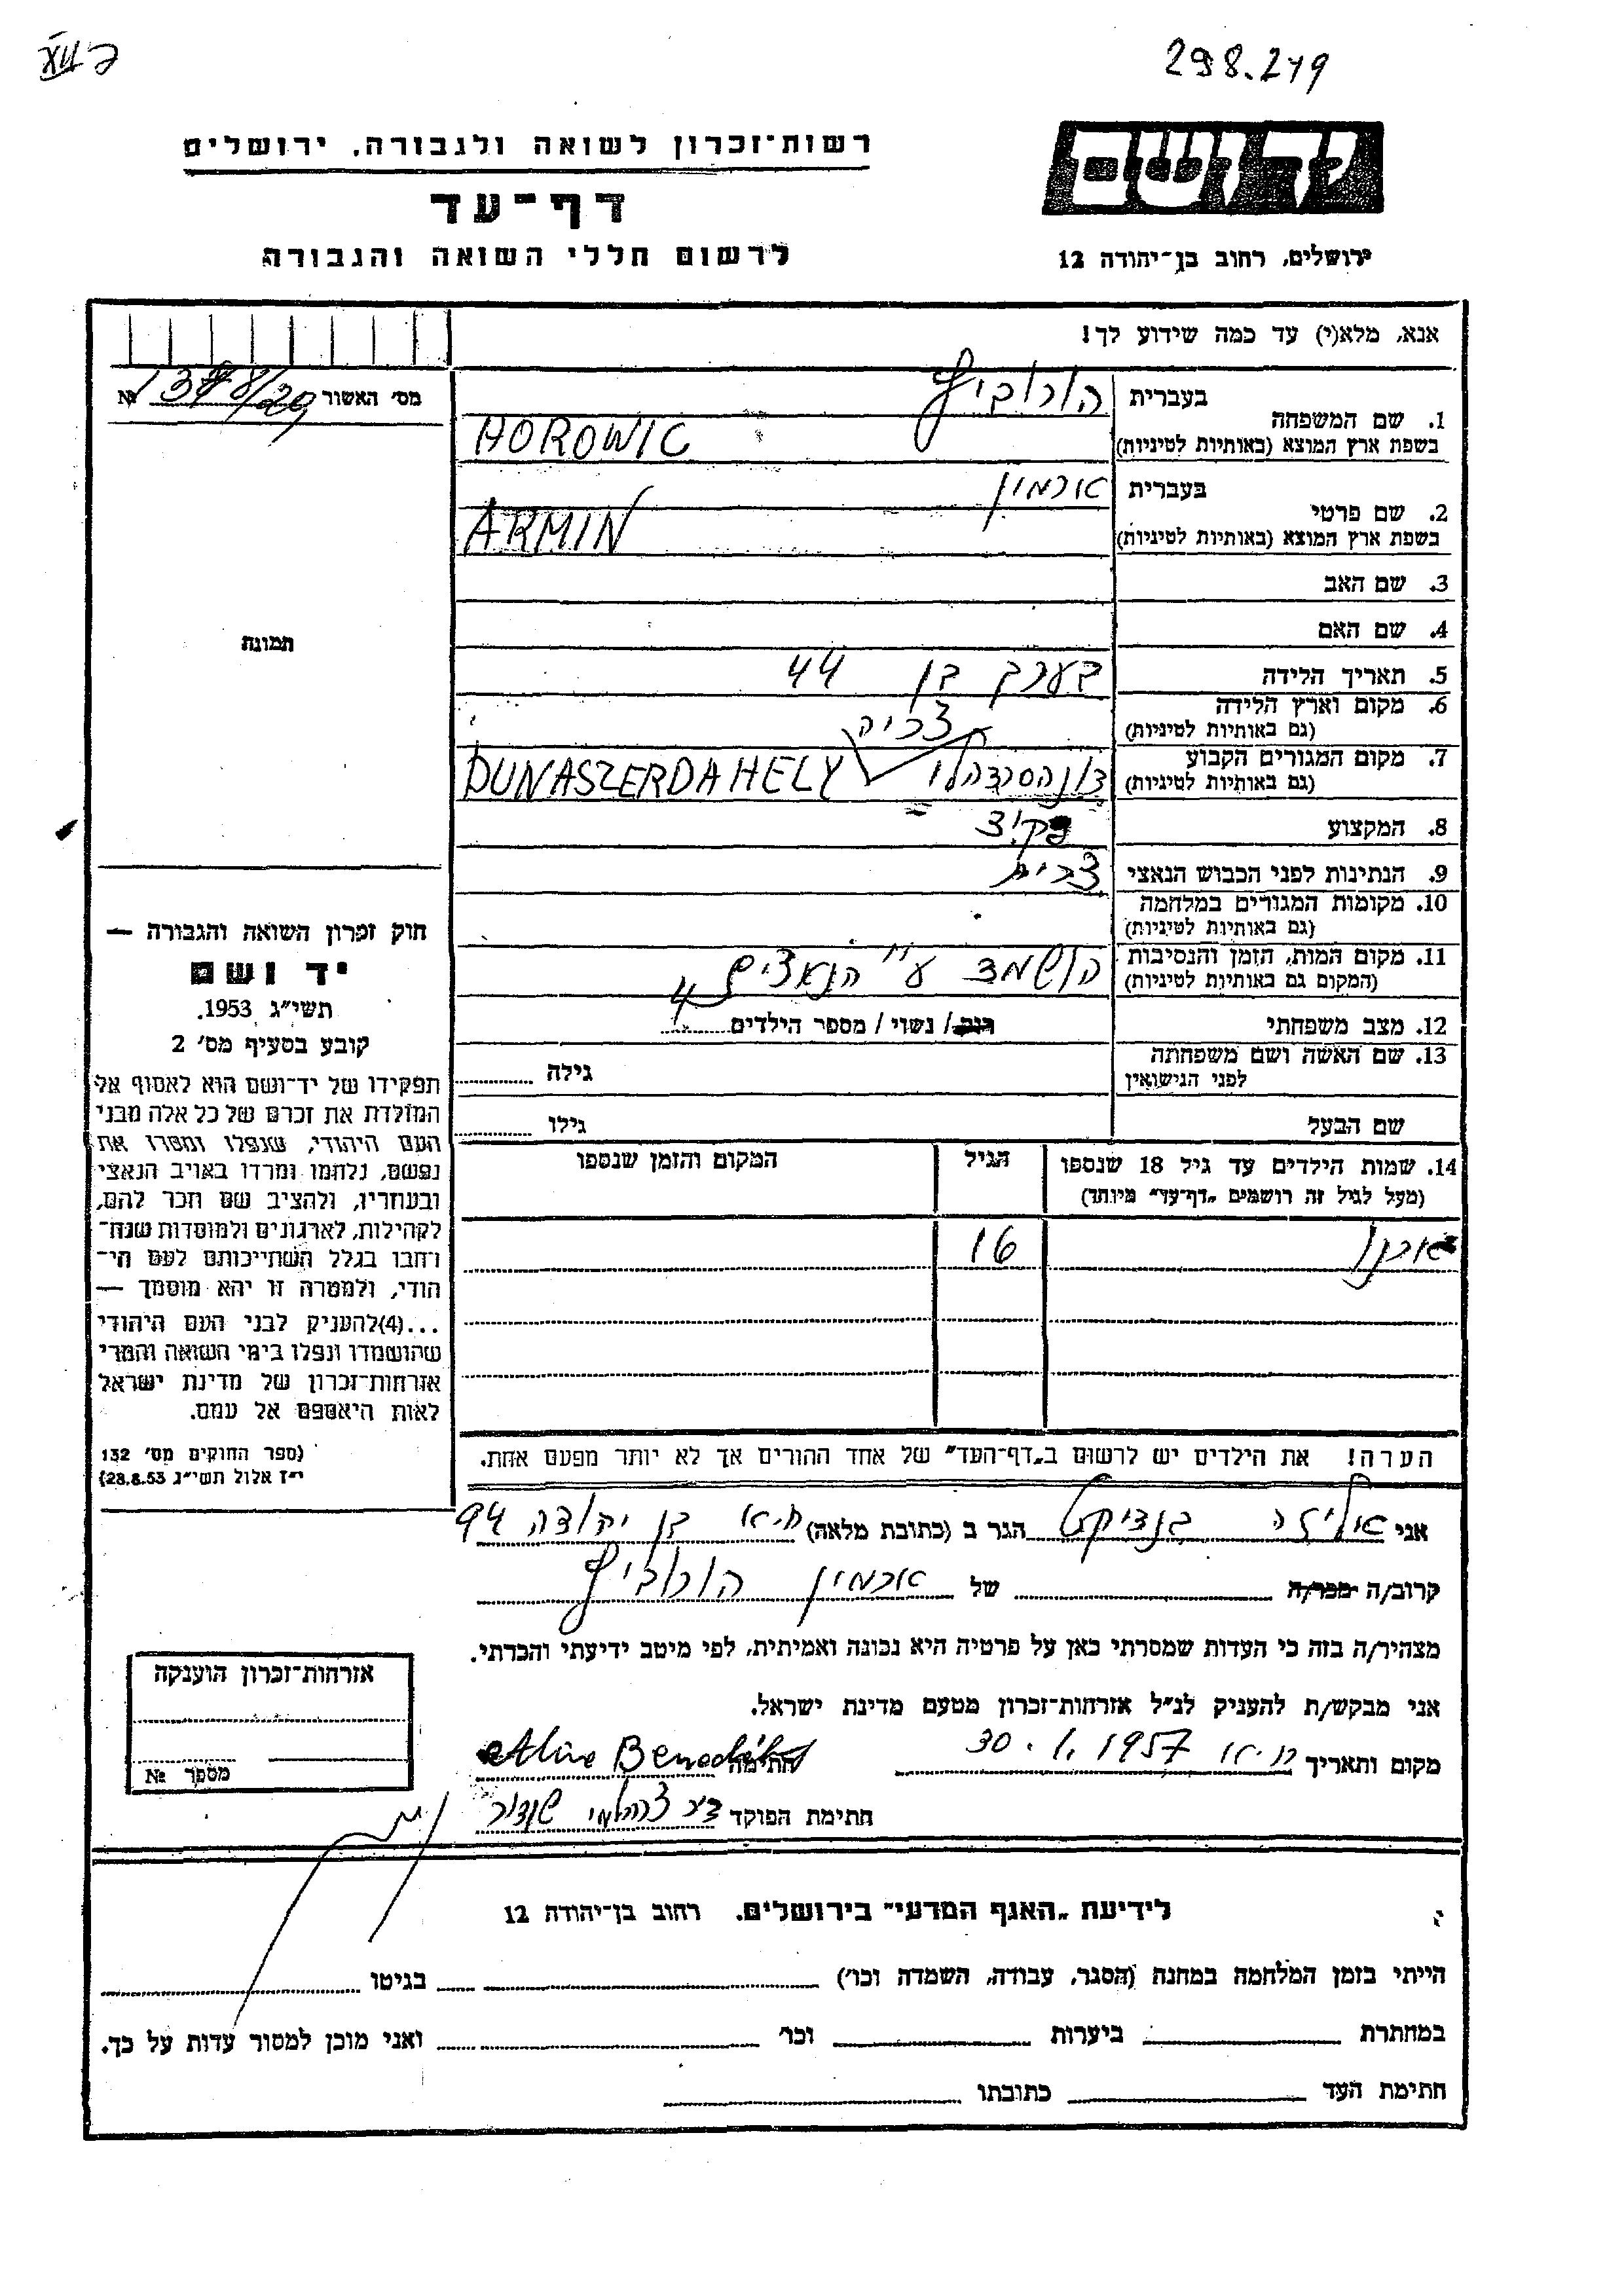 298.219
יד ושם
ירושלים, רחוב בן־יהודה 12
רשות־זכרון לשואה ולגבורה, ירושלים
דף־עד
לרשום חללי השואה והגבורה
אנא, מלא(י) עד כמה שידוע לך!
1. שם המשפחה בעברית הורוביץ
בשפת ארץ המוצא (באותיות לטיניות) HOROWIC
2. שם פרטי בעברית ארמין
בשפת ארץ המוצא (באותיות לטיניות) ARMIN
3. שם האב
4. שם האם
5. תאריך הלידה בערך בן 44
6. מקום וארץ הלידה
(גם באותיות לטיניות)
7. מקום המגורים הקבוע DUNASZERDAHELY
(גם באותיות לטיניות)
8. המקצוע פקיד
9. הנתינות לפני הכבוש הנאצי
10. מקומות המגורים במלחמה
(גם באותיות לטיניות)
11. מקום המות, הזמן והנסיבות הושמד ע"י הנאצים
(המקום גם באותיות לטיניות)
12. מצב משפחתי רווק/ נשוי/ מספר הילדים 4
13. שם האשה ושם משפחתה גילה
לפני הנישואין
שם הבעל גילו
14. שמות הילדים עד גיל 18 שנספו הגיל המקום והזמן שנספו
(מעל לגיל זה רושמים „דף־עד" מיוחד)
16
הערה! את הילדים יש לרשום ב„דף־העד" של אחד ההורים אך לא יותר מפעם אחת.
מס' האשור №
תמונה
חוק זכרון השואה והגבורה —
יד ושם
תשי"ג 1953.
קובע בסעיף מס' 2
תפקידו של יד־ושם הוא לאסוף אל
המולדת את זכרם של כל אלה מבני
העם היהודי, שנפלו ומסרו את
נפשם, נלחמו ומרדו באויב הנאצי
ובעוזריו, ולהציב שם וזכר להם,
לקהילות, לארגונים ולמוסדות שנח־
רבו בגלל השתייכותם לעם הי־
הודי, ולמטרה זו יהא מוסמך —
...(4)להעניק לבני העם היהודי
שהושמדו ונפלו בימי השואה והמרי
אזרחות־זכרון של מדינת ישראל
לאות היאספם אל עמם.
(ספר החוקים מס' 132
י"ז אלול תשי"ג 28.8.53)
אני אליזה בנדיקט הגר ב (כתובת מלאה) ת.א בן יהודה 94
קרוב/ה מכר/ה של ארמין הורוביץ
מצהיר/ה בזה כי העדות שמסרתי כאן על פרטיה היא נכונה ואמיתית, לפי מיטב ידיעתי והכרתי.
אני מבקש/ת להעניק לנ"ל אזרחות־זכרון מטעם מדינת ישראל.
מקום ותאריך ת.א 30.1.1957 חתימה
חתימת הפוקד
אזרחות־זכרון הוענקה
מספר №
לידיעת „האגף המדעי" בירושלים. רחוב בן־יהודה 12
הייתי בזמן המלחמה במחנה (הסגר, עבודה, השמדה וכו') בגיטו
במחתרת ביערות וכו' ואני מוכן למסור עדות על כך.
חתימת העד כתובתו